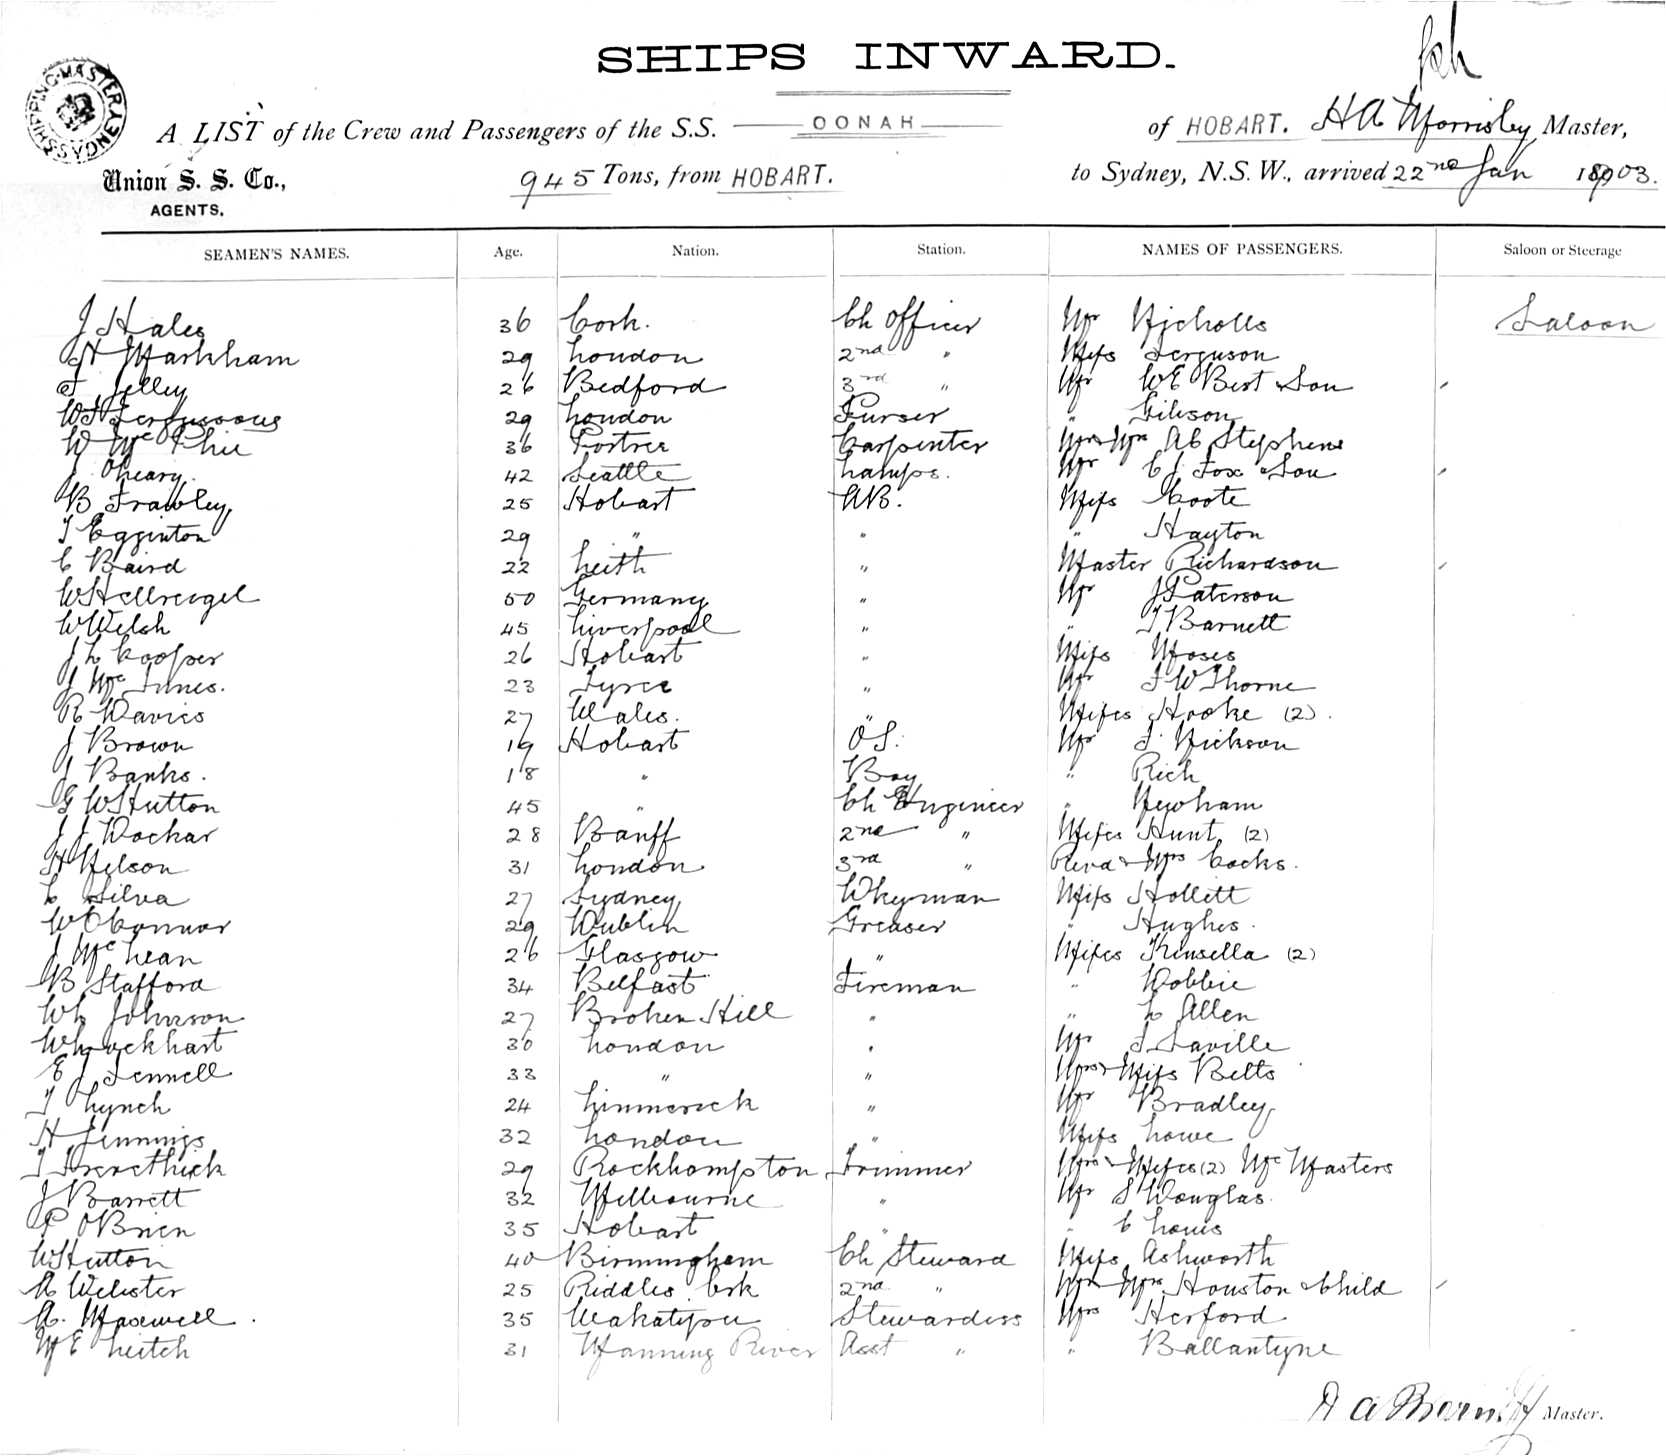 SHIPS INWARD.
SHIPPING MASTER SYDNEY
A LIST of the Crew and Passengers of the S.S. OONAH of HOBART. H A Morrisby Master,
Union S. S. Co., AGENTS. 945 Tons, from HOBART. to Sydney, N.S.W., arrived 22nd Jan 1903.
SEAMEN'S NAMES. Age. Nation. Station. NAMES OF PASSENGERS. Saloon or Steerage
J Hales 36 Cork. Ch Officer Mr Nicholls Saloon
H Markham 29 London 2nd " Miss Ferguson
Jelley 26 Bedford 3rd " Mr W E Best & Son
29 London Purser " Gibson
W McPhee 36 Portree Carpenter Mr & Mrs A C Stephens
J Cleary. 42 Seattle Lamps. Mr C J Fox & Son
B Frawley 25 Hobart AB. Miss Coote
T Egginton 29 " " " Hayton
C Baird 22 Leith " Master Richardson
W Hellreigel 50 Germany " Mr J Paterson
W Welsh 45 Liverpool " " T Barnett
J L Cooper 26 Hobart " Miss Moses
J McInnes. 23 Tyree " Mr F W Thorne
R Davies 27 Wales. " Misses Hooke (2).
J Brown 19 Hobart O S. Mr Nickson
J Banks. 18 " Boy " Rich
G W Hutton 45 " Ch Engineer " Newham
J J Dockar 28 Banff 2nd " Misses Hunt (2)
H Nelson 31 London 3rd " Revd & Mrs Cocks.
C Silva 27 Sydney Wkyman Miss Hollett
W O'Connor 29 Dublin Greaser " Hughes.
J McLean 26 Glasgow " Misses Kinsella (2)
B Stafford 34 Belfast Fireman " Dobbie
W L Johnson 27 Broken Hill " " L Allen
W Lockhart 30 London " Mr Saville
E J Fennell 33 " " Mrs & Miss Betts
T Lynch 24 Limmerick " Mr Bradley
H Jennings 32 London " Miss Lowe
T 29 Rockhampton Trimmer Mrs & Misses (2) McMasters
J Barrett 32 Melbourne " Mr S Douglas.
P O'Brien 35 Hobart " " C Louis
W Hutton 40 Birmingham Ch Steward Miss Ashworth
A Webster 25 Riddles Crk 2nd " Mr & Mrs Houston & Child
A. Maxwell. 35 Wakatipu Stewardess Mrs Herford
M E Leitch 31 Manning River Asst " " Ballantyne
Master.